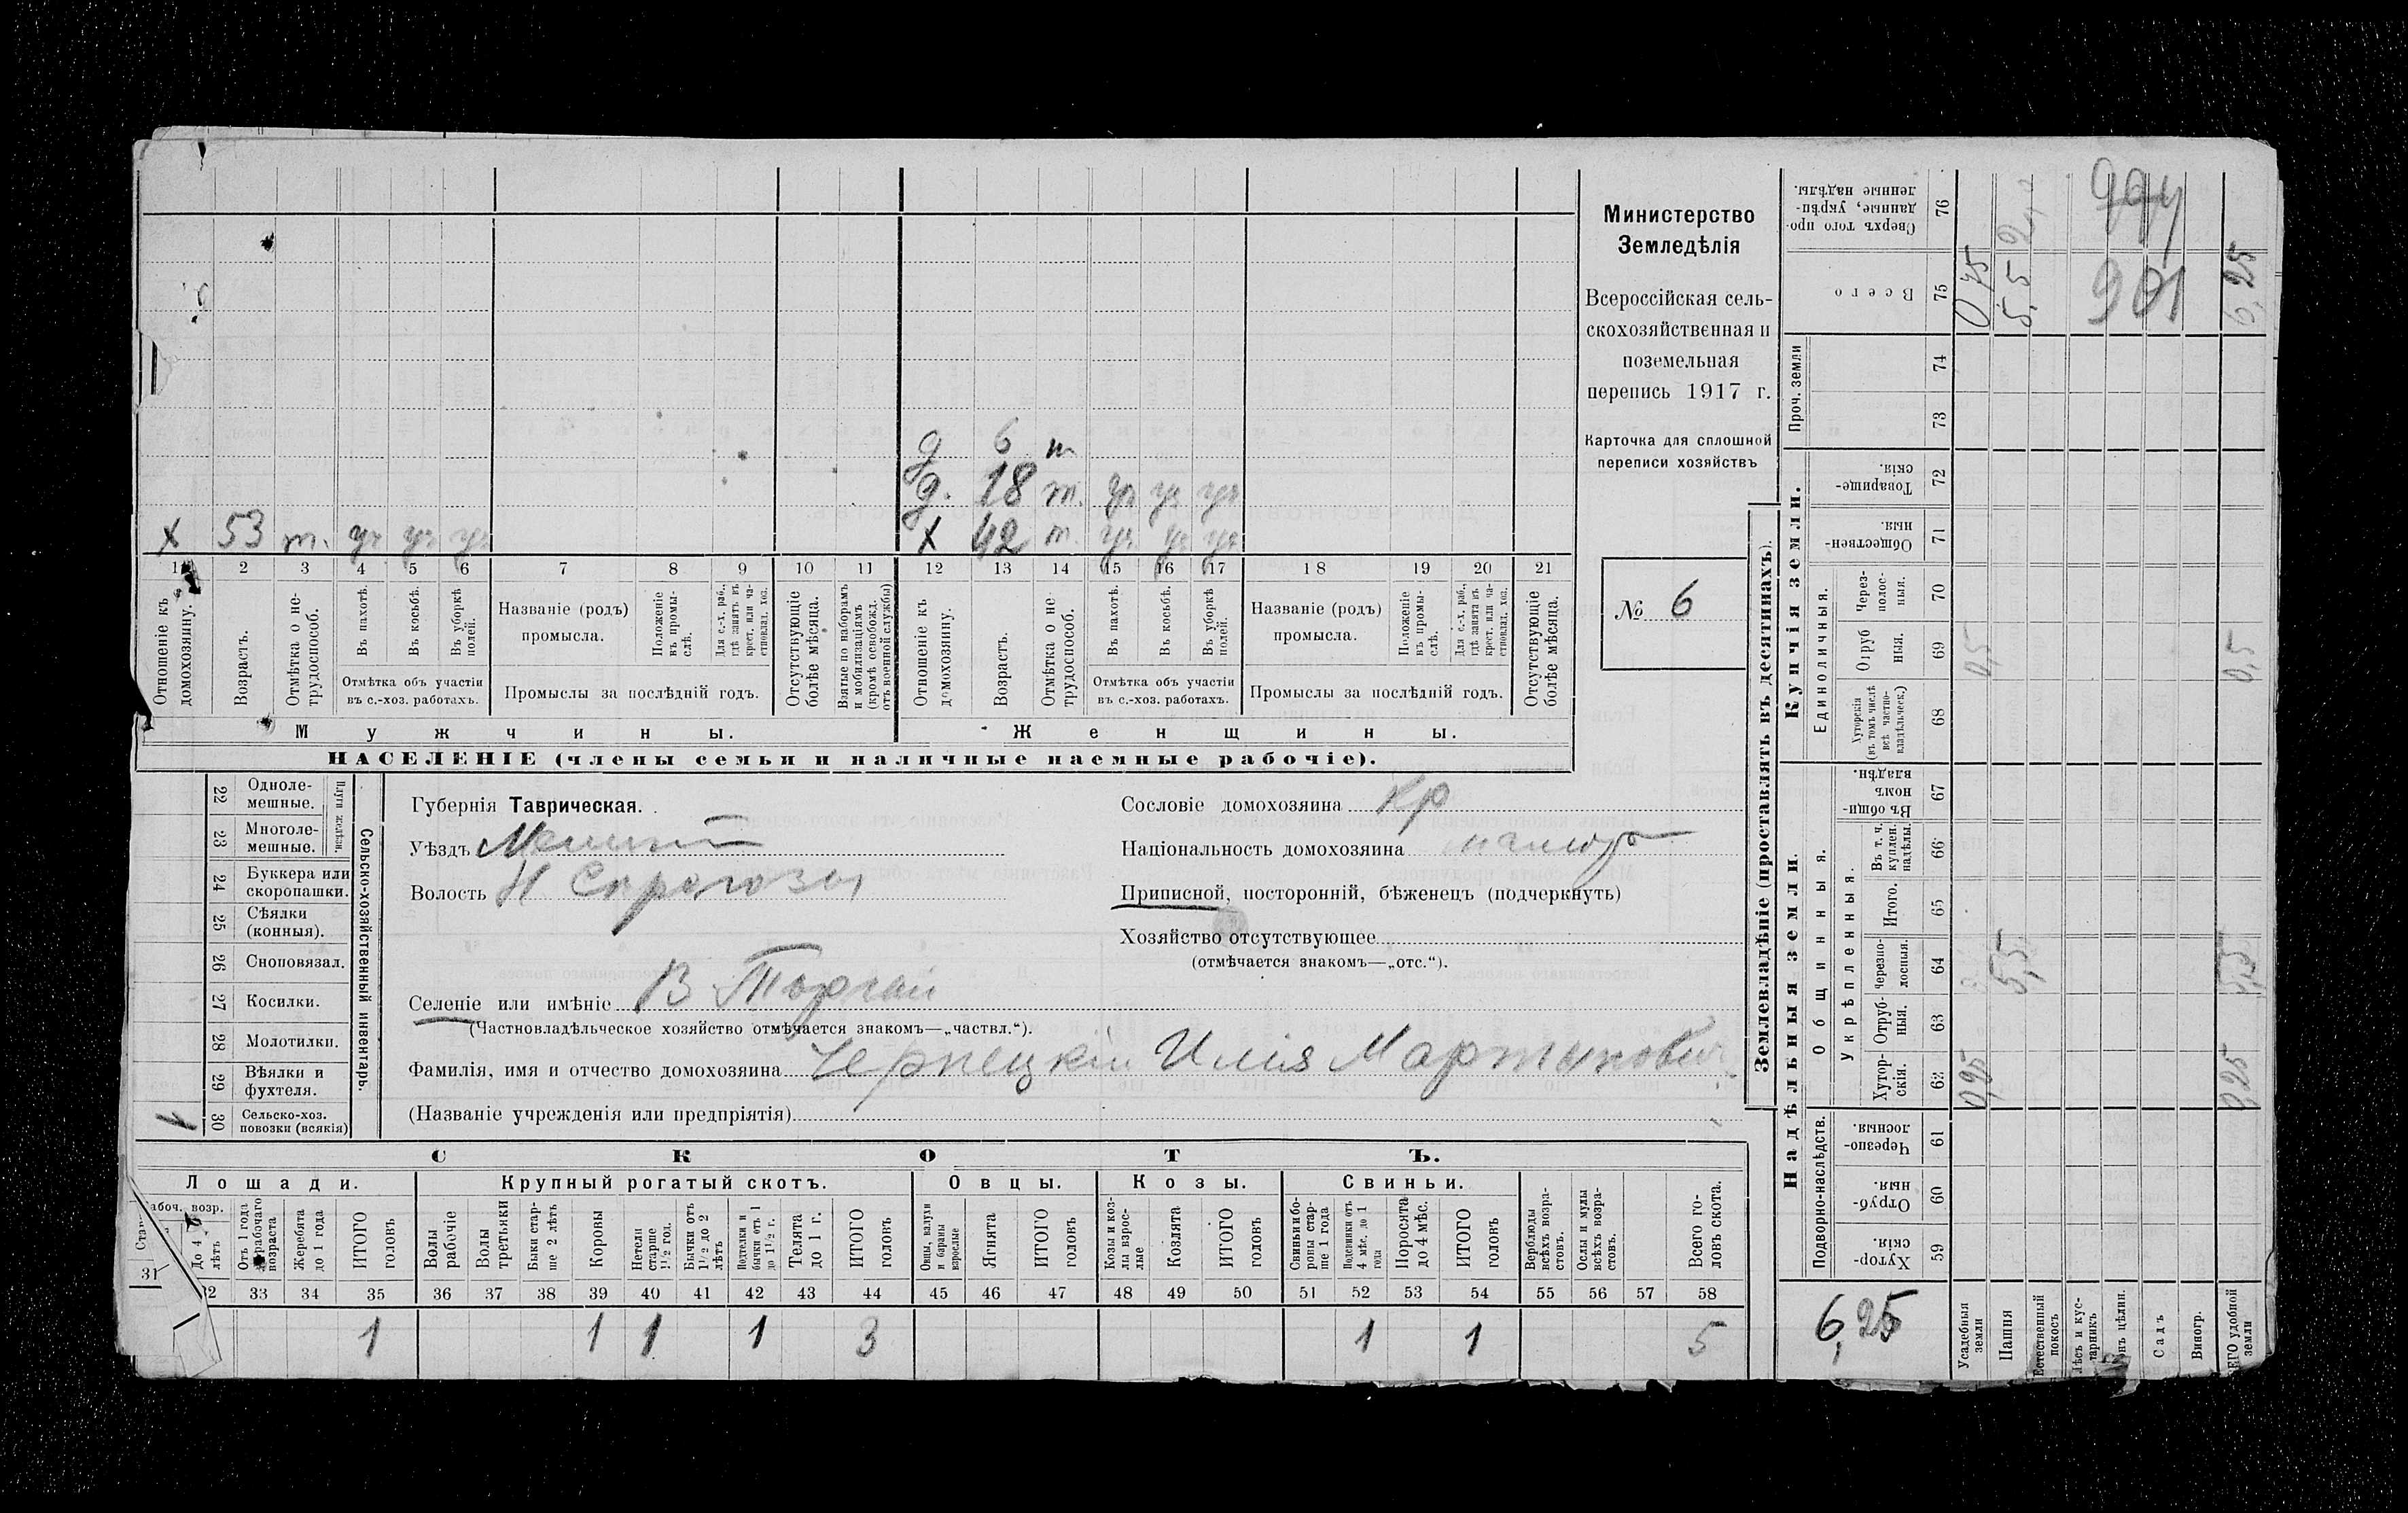 Министерство
Земледѣлія
Всероссійская сель-
скохозяйственная и
поземельная
перепись 1917 г.
Карточка для сплошной
переписи хозяйствъ
№ 6
д 6 т
д. 18 т. уч уч уч
х 53 т. уч уч уч
х 42 т. уч уч уч
1 2 3 4 5 6 7 8 9 10 11 12 13 14 15 16 17 18 19 20 21
Отношеніе къ домохозяину.
Возрастъ.
Отмѣтка о не-трудоспособ.
Въ пахотѣ.
Въ косьбѣ.
Въ уборкѣ полей.
Отмѣтка объ участіи
въ с.-хоз. работахъ.
Названіе (родъ)
промысла.
Положеніе въ промы-слѣ.
Для с.-х. раб., гдѣ занятъ въ крест. или ча-стновлад. хоз.
Промыслы за послѣдній годъ.
Отсутствующіе болѣе мѣсяца.
Взятые по наборамъ и мобилизаціямъ (кромѣ освобожд. отъ военной службы)
Отношеніе къ домохозяину.
Возрастъ.
Отмѣтка о не-трудоспособ.
Въ пахотѣ.
Въ косьбѣ.
Въ уборкѣ полей.
Отмѣтка объ участіи
въ с.-хоз. работахъ.
Названіе (родъ)
промысла.
Положеніе въ промы-слѣ.
Для с.-х. раб., гдѣ занята въ крест. или ча-стновлад. хоз.
Промыслы за послѣдній годъ.
Отсутствующіе болѣе мѣсяца.
Мужчины.
Женщины.
НАСЕЛЕНІЕ (члены семьи и наличные наемные рабочіе).
22 Одноле-мешные.
23 Многоле-мешные.
Плуги желѣзн.
24 Буккера или скоропашки.
25 Сѣялки (конныя).
26 Сноповязал.
27 Косилки.
28 Молотилки.
29 Вѣялки и фухтеля.
1 30 Сельско-хоз. повозки (всякія)
Сельско-хозяйственный инвентарь.
Губернія Таврическая.
Уѣздъ
Волость Н Серогозы
Селеніе или имѣніе В Торгаи
(Частновладѣльческое хозяйство отмѣчается знакомъ—„частвл.“).
Фамилія, имя и отчество домохозяина Чернецкій Илія Мартынович
(Названіе учрежденія или предпріятія)
Сословіе домохозяина Кр
Національность домохозяина малор
Приписной, посторонній, бѣженецъ (подчеркнуть)
Хозяйство отсутствующее
(отмѣчается знакомъ—„отс.“).
СКОТЪ.
Лошади.
Крупный рогатый скотъ.
Овцы.
Козы.
Свиньи.
абоч. возр.
До 4 лѣтъ
Отъ 1 года до рабочаго возраста
Жеребята до 1 года
ИТОГО головъ
Волы рабочіе
Волы третьяки
Быки стар-ше 2 лѣтъ
Коровы
Нетели старше 1½ год.
Бычки отъ 1½ до 2 лѣтъ
Подтелки и бычки отъ 1 до 1½ г.
Телята до 1 г.
ИТОГО головъ
Овцы, валухи и бараны взрослые
Ягнята
ИТОГО головъ
Козы и коз-лы взрос-лые
Козлята
ИТОГО головъ
Свиньи и бо-ровы стар-ше 1 года
Подсвинки отъ 4 мѣс. до 1 года
Поросята до 4 мѣс.
ИТОГО головъ
Верблюды всѣхъ возра-стовъ.
Ослы и мулы всѣхъ возра-стовъ.
Всего го-ловъ скота.
31 32 33 34 35 36 37 38 39 40 41 42 43 44 45 46 47 48 49 50 51 52 53 54 55 56 57 58
1 1 1 1 3 1 1 5
Землевладѣніе (проставлять въ десятинахъ).
Надѣльныя земли.
Купчія земли.
Проч. земли
Подворно-наслѣдств.
Общинныя.
Укрѣпленныя.
Единоличныя.
Сверхъ того про-данные, укрѣп-ленные надѣлы. 76
Всего 75
74
73
Товарище-скія. 72
Обществен-ныя. 71
Через-полос-ныя. 70
Отруб ныя. 69
Хуторскія (въ томъ числѣ всѣ частно-владѣльческ.) 68
Въ общи-номъ владѣн. 67
Въ т. ч. куплен. надѣлы. 66
Итого. 65
Черезпо-лосныя. 64
Отруб-ныя. 63
Хутор-скія. 62
Черезпо-лосныя. 61
Отруб-ныя. 60
Хутор-скія. 59
994
901
5,5
6,25
0,5
0,5
5,5
5,5
6,25
Усадебныя земли
Пашня
Естественный покосъ
Лѣсъ и кус-тарникъ
Садъ
Виногр.
ЕГО удобной земли